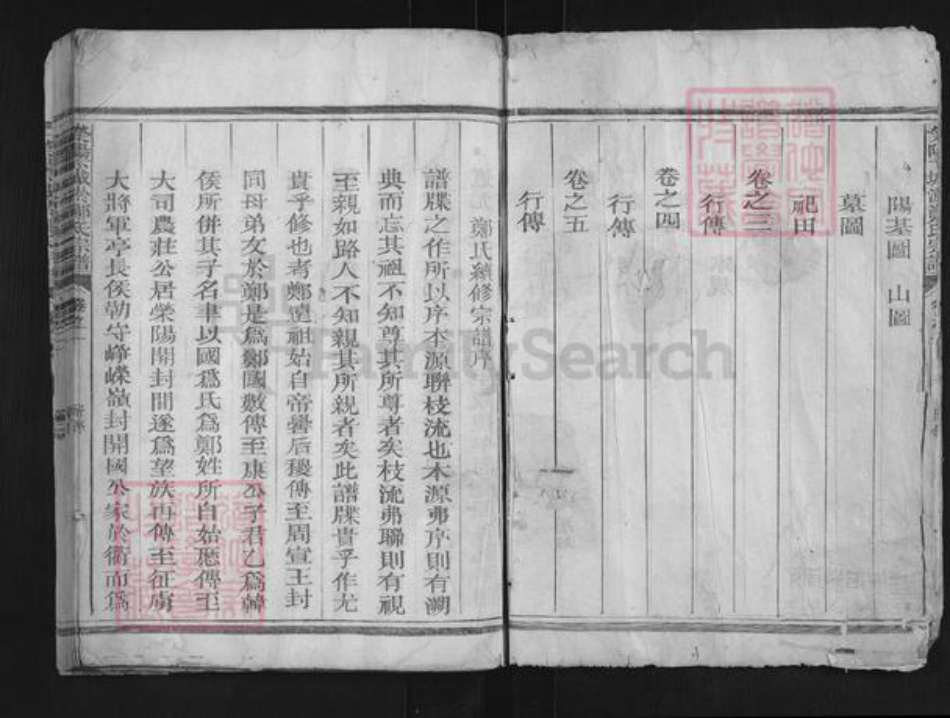 陽基圖 山圖
墓圖
祀田
卷之三
行傳
卷之四
行傳
卷之五
行傳
鄭氏續修宗譜序
譜牒之作所以序本源聯枝流也本源弗序則有溯
典而忘其祖不知尊其所尊者矣枝流弗聯則有視
至親如路人不知親其所親者矣此譜牒貴乎作尤
貴乎修也者鄭遠祖始自帝嚳后稷傳至周宣王封
同母弟友於鄭是為鄭國數傳至康公子君乙為韓
侯所併其子名聿以國為氏為鄭姓所自始歷傳至
大司農莊公居滎陽開封間遂為望族再傳至征虜
大將軍亭長侯勒守崢嶸嶺封開國公家於衢而為
FamilySearch